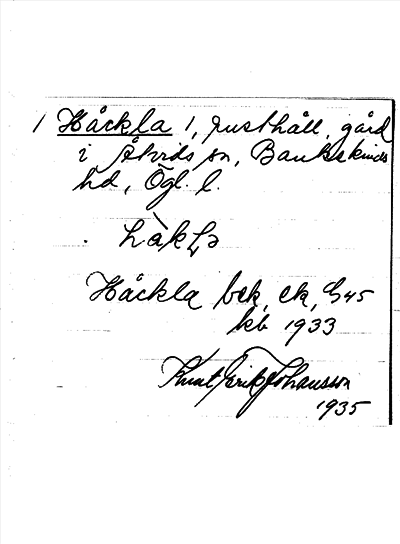 1 Håckla 1, rusthåll, gård
i Åtvids sn, Bankekinds
hd, Ögl. l.
Håckla bek, ek, G45
kb 1933
Knut Erik Johansson
1935